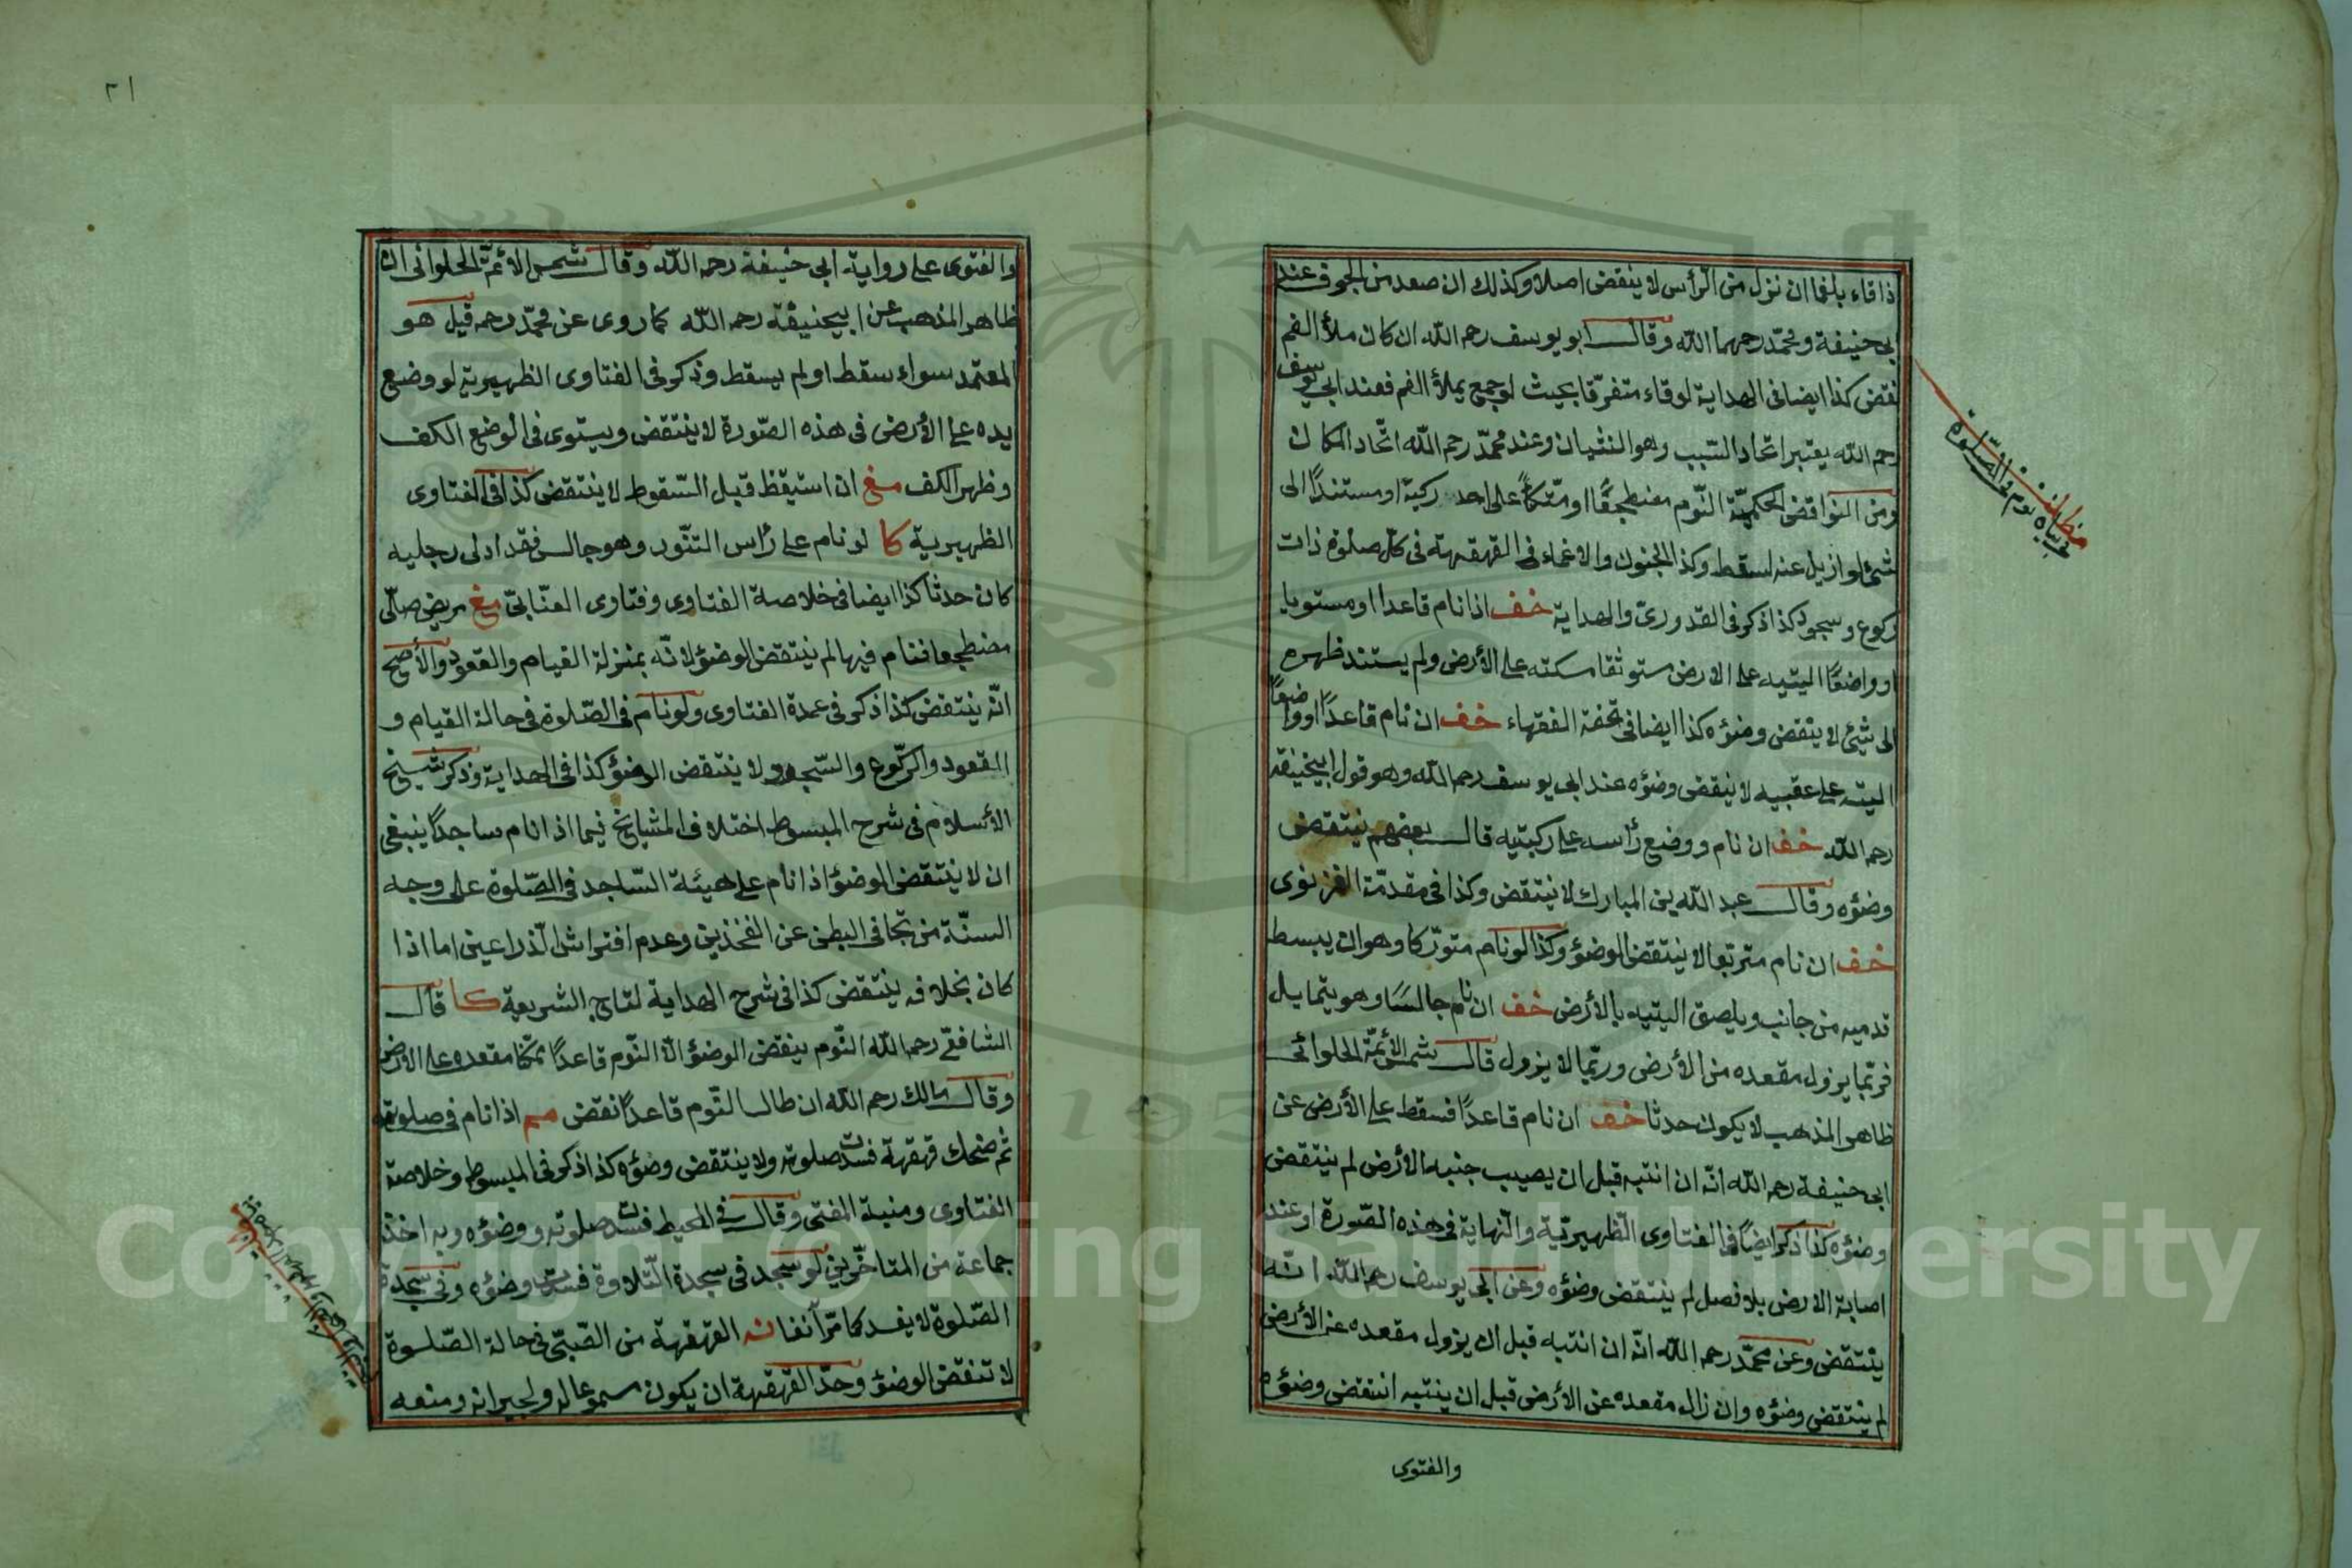 ذا قاء بلغما ان نزل من الرأس لا ينقض اصلا وكذلك ان صعد من الجوف عند
ابى حنيفة ومحمّد رحمهما اللّه وقال ابو يوسف رحم اللّه ان كان ملأ الفم
نقض كذا ايضا فى الهداية لوقاء متفرّقا بحيث لوجمع يملأ الفم فعند ابى يوسف
رحم اللّه يعتبر اتحاد السّبب وهو النثيان وعند محمّد رحم اللّه اتّحاد المكان
ومن النّواقض الحكميّة النّوم مضطجعًا او متّكأً على احد ركبته او مستندًا الى
شئ لو ازيل عنه لسقط وكذا الجنون والاغماء فى القهقهة فى كلّ صلوة ذات
ركوع وسجود كذا ذكر فى القدورىّ والهداية خف اذا نام قاعدا او مستويا
او واضعًا اليتيه على الارض ستوثقا مسكته على الأرض ولم يستند ظهره
الى شئ لا ينقض وضؤه كذا ايضا فى تحفة الفقهاء خف ان نام قاعدًا او واضعًا
اليته على عقبيه لا ينقض وضؤه عند ابى يوسف رحم اللّه وهو قول ابيحنيفة
رحم اللّه خف ان نام ووضع رأسه على ركبتيه قال بعضهم ينتقض
وضؤه وقال عبد اللّه بن المبارك لا ينتقض وكذا فى مقدمّة الغزنوى
خف ان نام متربّعا لا ينتقض الوضؤ وكذا لو نام متورّكا وهو ان يبسط
قدميه من جانب ويلصق اليتيه بالأرض خف ان نام جالسًا وهو يتمايل
فربّما يزول مقعده من الأرض وربّما لا يزول قال شمس الأئمّة الحلوانى
ظاهر المذهب لا يكون حدثا خف ان نام قاعدًا فسقط على الأرض عن
ابى حنيفة رحم اللّه انّه ان انتبه قبل ان يصيب جنبه الأرض لم ينتقض
وضؤه كذا ذكر ايضًا فى الفتاوى الظّهيريّة والنّهاية فى هذه الصّورة او عند
اصابة الارض بلا فصل لم ينتقض وضؤه وعن ابى يوسف رحم اللّه انّه
ينتقض وعن محمّد رحم اللّه انّه ان انتبه قبل ان يزول مقعده عن الأرض
لم ينتقض وضؤه وان زال مقعده عن الأرض قبل ان ينتبه انتقض وضؤه
والفتوى
٢١
والفتوى على رواية ابى حنيفة رحم اللّه وقال شمس الائمّة الحلوانى انّ
ظاهر المذهب عن ابيحنيفة رحم اللّه كما روى عن محمّد رحم قيل هو
المعتمد سواء سقط او لم يسقط وذكر فى الفتاوى الظهيرية لو وضع
يده على الأرض فى هذه الصّورة لا ينتقض ويستوى فى الوضع الكف
وظهر الكف مغ ان استيقظ قبل السّقوط لا ينتقض كذا فى الفتاوى
الظهيرية كا لو نام على رأس التنّور وهو جالس فقد ادلى رجليه
كان حدثا كذا ايضا فى خلاصة الفتاوى وفتاوى العتّابىّ مغ مريض صلّى
مضطجعا فنام فيها لم ينتقض الوضؤ لانّه بمنزلة القيام والقعود والأصحّ
انّه ينتقض كذا ذكر فى عمدة الفتاوى ولو نام فى الصّلوة فى حالة القيام و
القعود والرّكوع والسّجود لا ينتقض الوضؤ كذا فى الهداية وذكر شيخ
الأسلام فى شرح المبسوط اختلاف المشايخ فيما اذا نام ساجدًا ينبغى
ان لا ينتقض الوضؤ اذا نام على هيئة السّاجد فى الصّلوة على وجه
السنّة من تجافى البطن عن الفخذين وعدم افتراش الذراعين اما اذا
كان بخلافه ينتقض كذا فى شرح الهداية لتاج الشريعة كا قال
الشافعىّ رحم اللّه النّوم ينقض الوضؤ الّا النّوم قاعدًا ممكّنا مقعده على الأرض
وقال مالك رحم اللّه ان طال النّوم قاعدًا نقض مم اذا نام فى صلوته
ثم ضحك قهقهة فسدت صلوته ولا ينتقض وضؤه كذا ذكر فى المبسوط وخلاصة
الفتاوى ومنية المفتى وقال فى المحيط فسدت صلوته ووضؤه وبه اخذ
جماعة من المتاخّرين لو سجد فى سجدة التّلاوة فسدت وضؤه وفى سجدة
الصّلوة لا يفسد كما مرّ آنفا نه القهقهة من الصّبّى فى حالة الصّلوة
لا تنقض الوضؤ وحدّ القهقهة ان يكون مسموعا له ولجيرانه ومنعه
Copyright © King Saud University